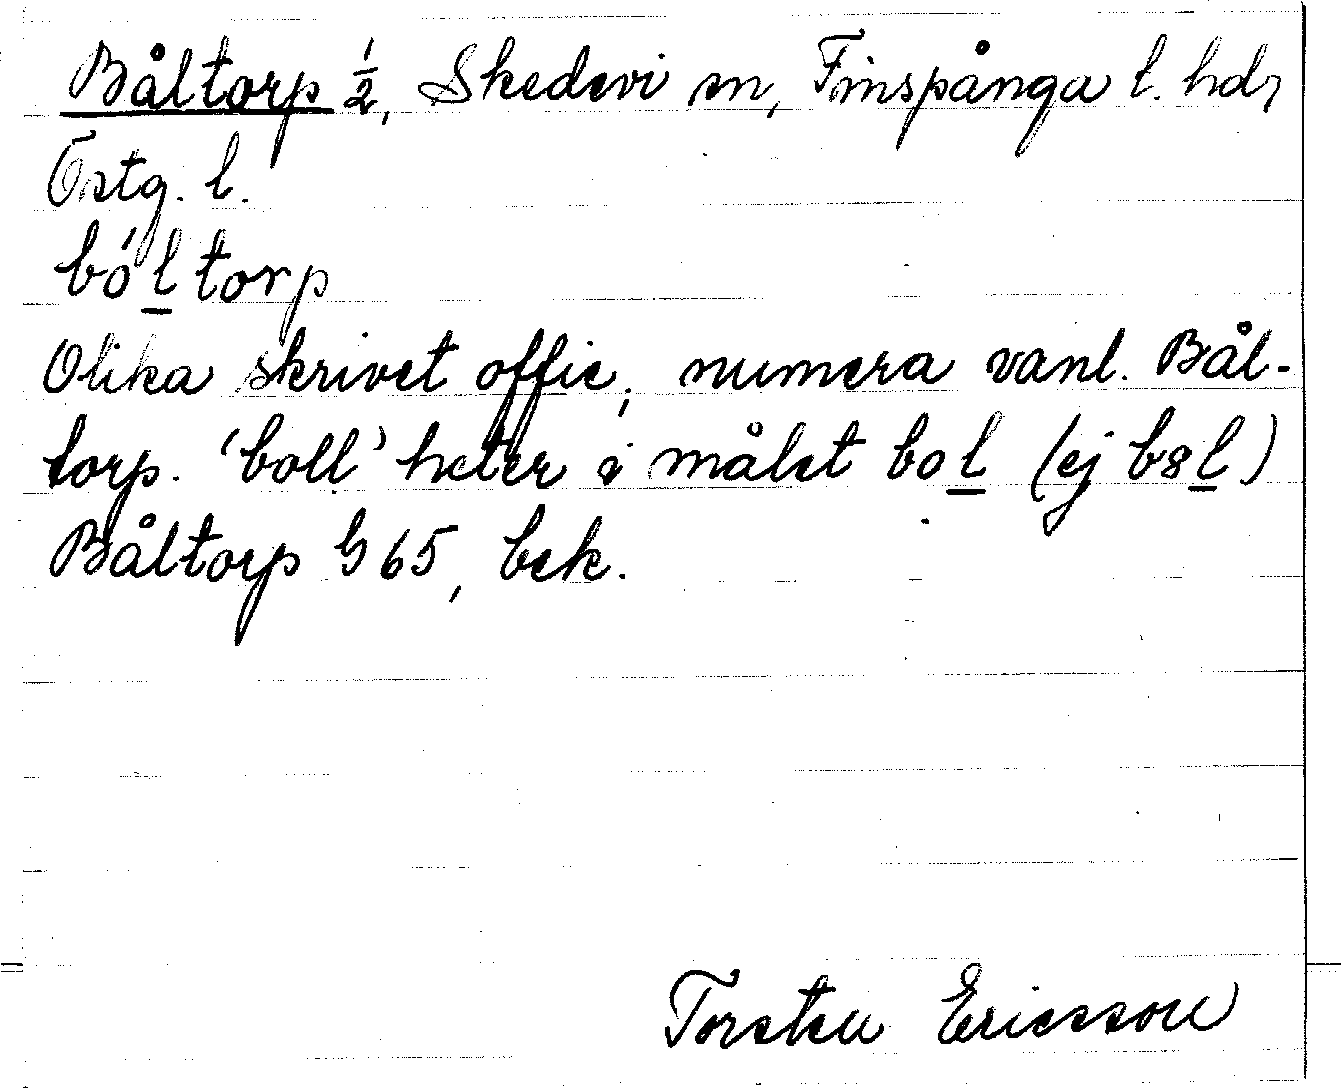 Båltorp ½, Skedevi sn, Finspånga l. hd,
Östg. l.
bó̲ltorp
Olika skrivet offic., numera vanl. Bål-
torp. 'boll' heter i målet bol̲ (ej b8l̲)
Båltorp G65, bek.
Torsten Ericsson